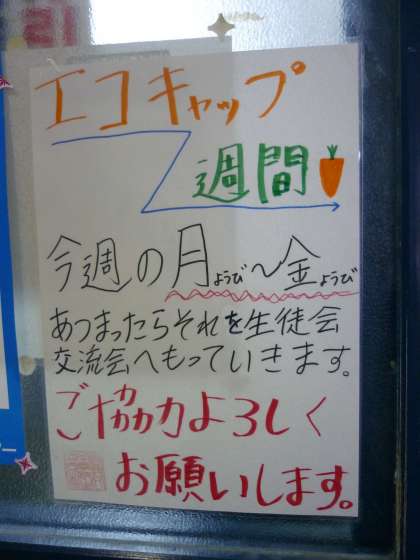 エコキャップ
週間
今週の月ようび〜金ようび
あつまったらそれを生徒会
交流会へもっていきます。
ご協力よろしく
お願いします。